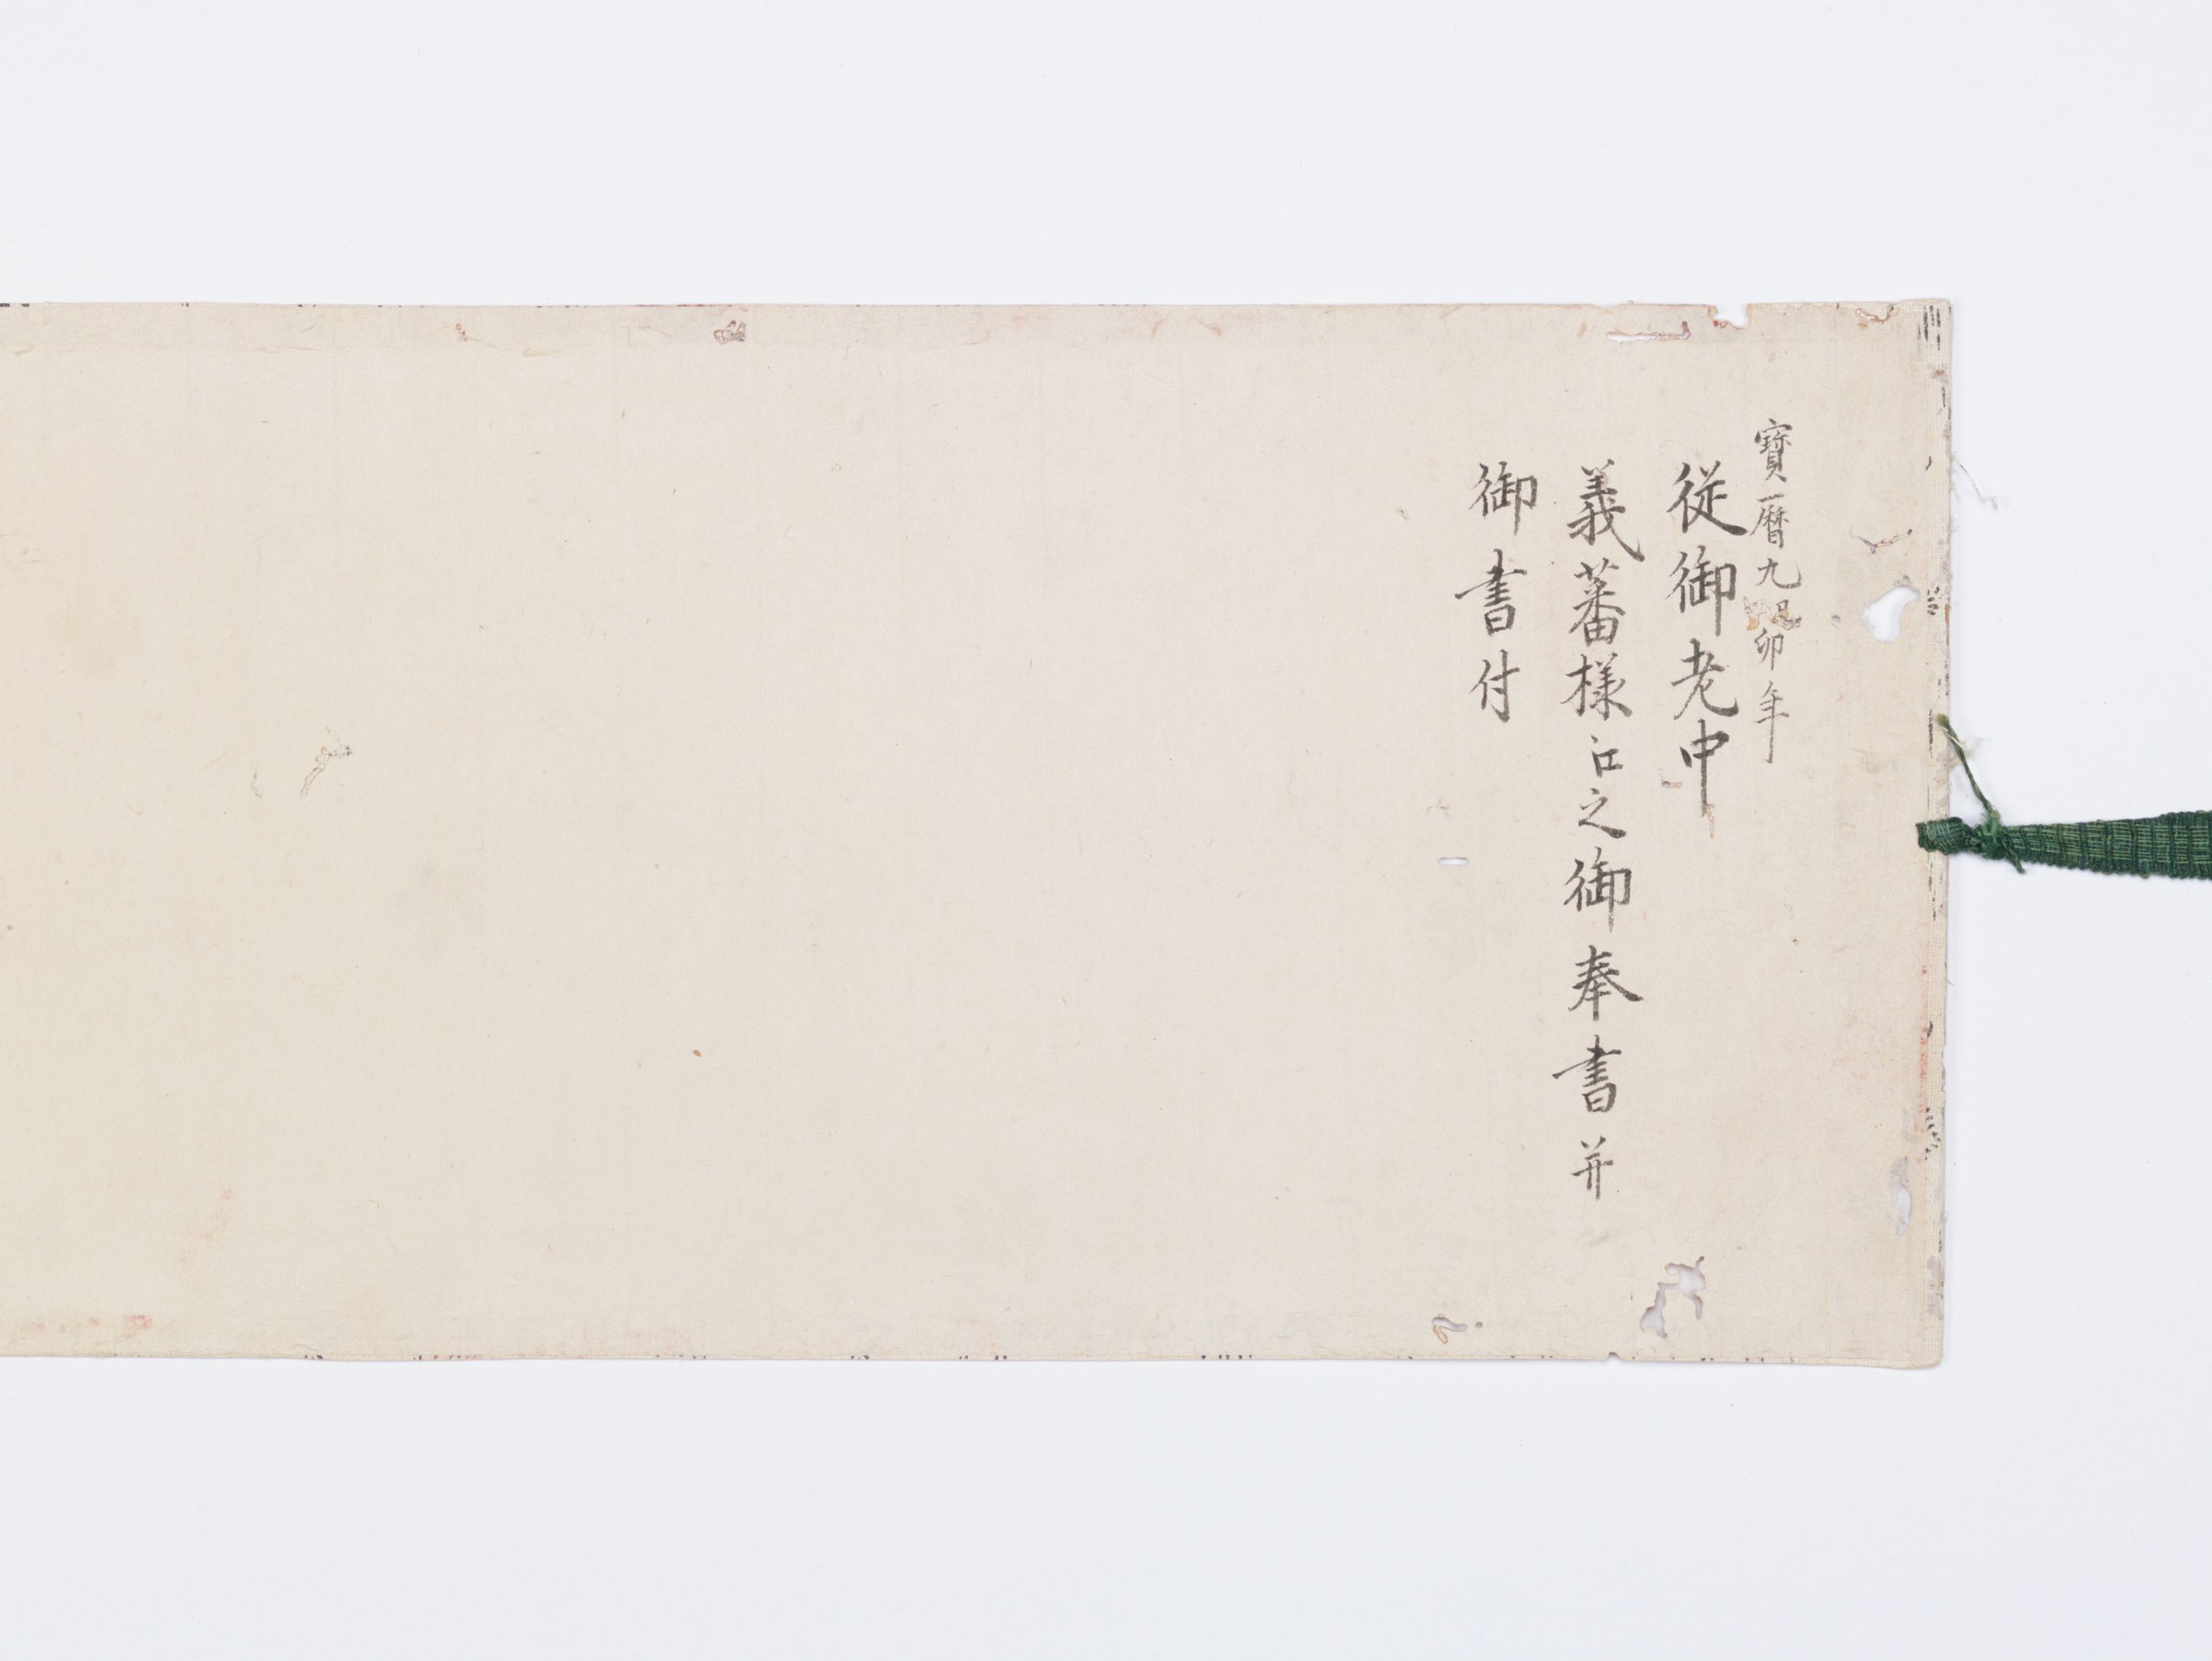 寶暦九己卯年
従御老中
義蕃様江之御奉書并
御書付